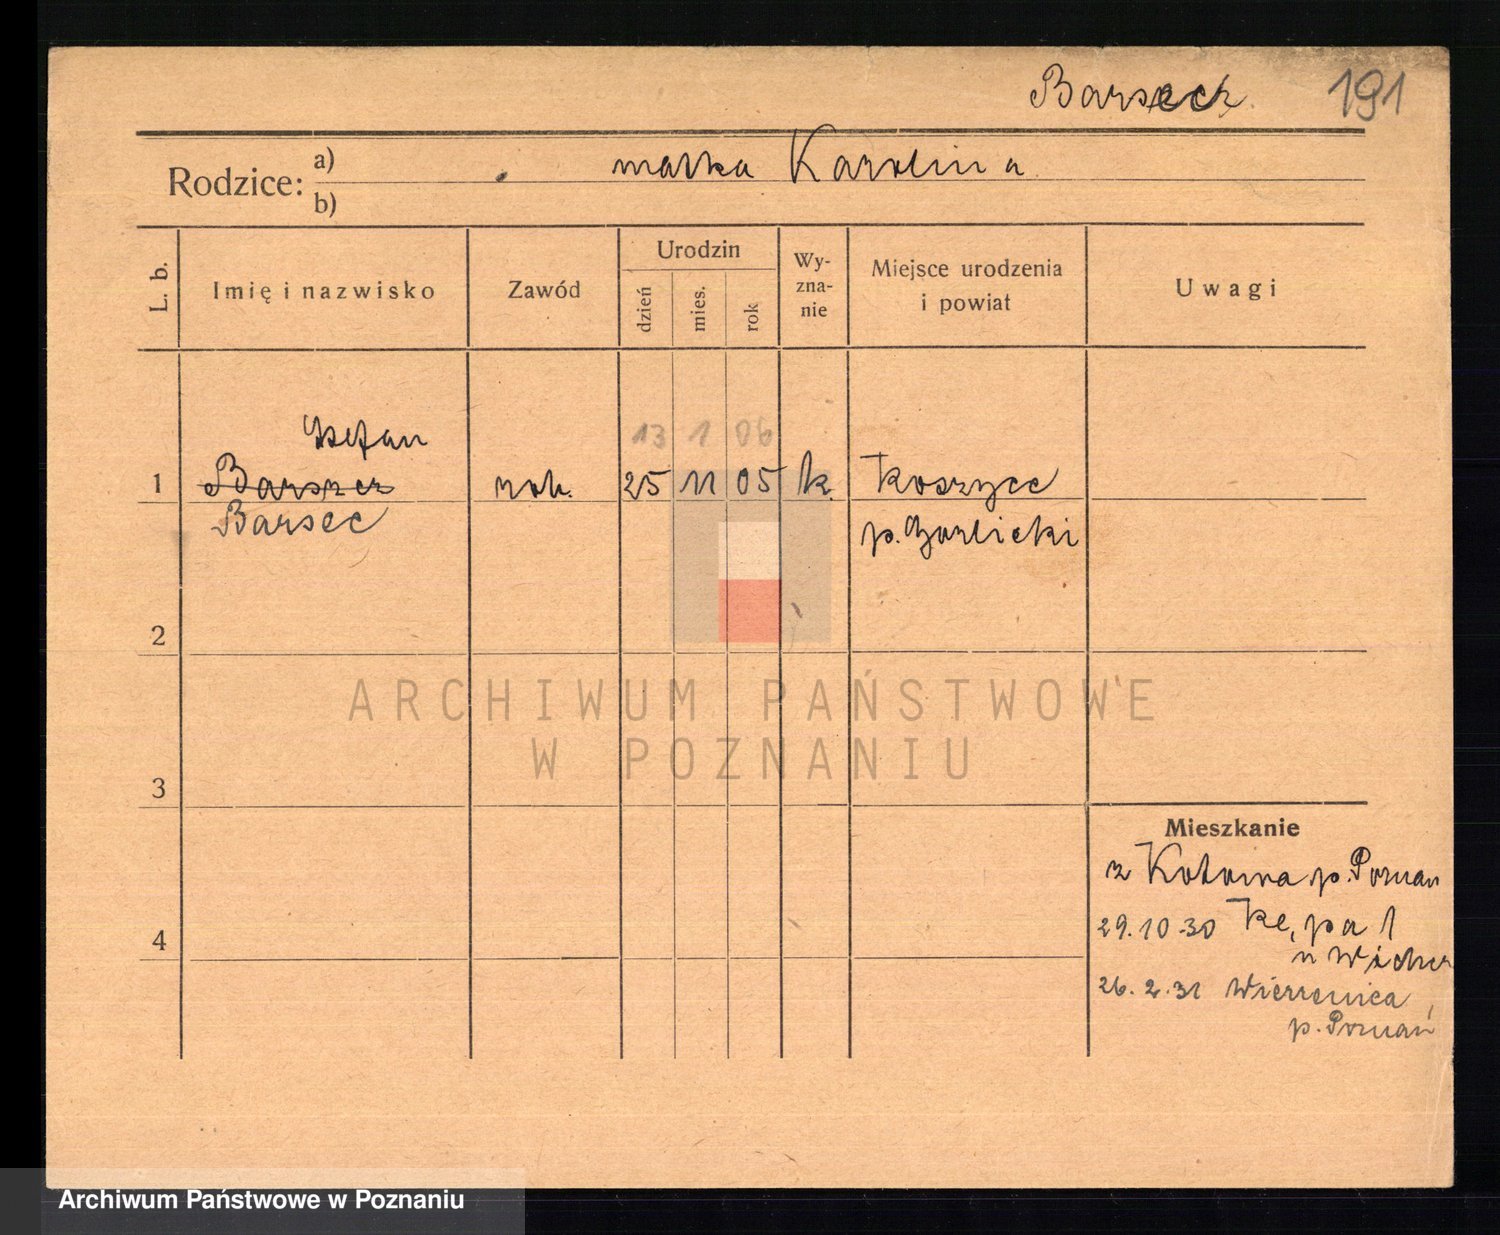 Barsecz 191
Rodzice: a) matka Karolina
b)
L. b. Imię i nazwisko Zawód Urodzin dzień mies. rok Wy-zna-nie Miejsce urodzenia i powiat Uwagi
Stefan 13 1 06
1 Barszcz rob. 25 11 05 k. Koszyce
Barsec p. Gorlicki
2
ARCHIWUM PAŃSTWOWE
W POZNANIU
3
Mieszkanie
z Kotowa p. Poznań
4 29.10.30 Kępa 1
u Wicher
26.2.31 Wierzenica
p. Poznań
Archiwum Państwowe w Poznaniu